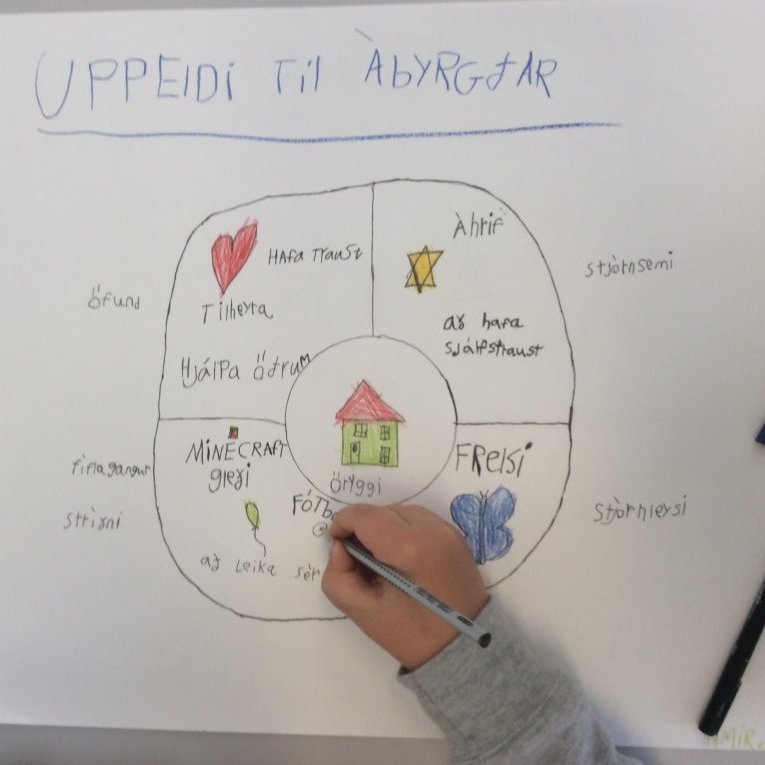 UPPEIDI Til ÀbYRGđAR
HAFA TRAUSt
Tilheyra
HJálPa öđrum
Àhrif
að hafa
Sjálfstraust
öfund
stjórnsemi
MiNECRAFt
gleði
FÓTb
að Leika sér
öryggi
FRelsi
fíflagangur
stríðni
Stjórnleysi